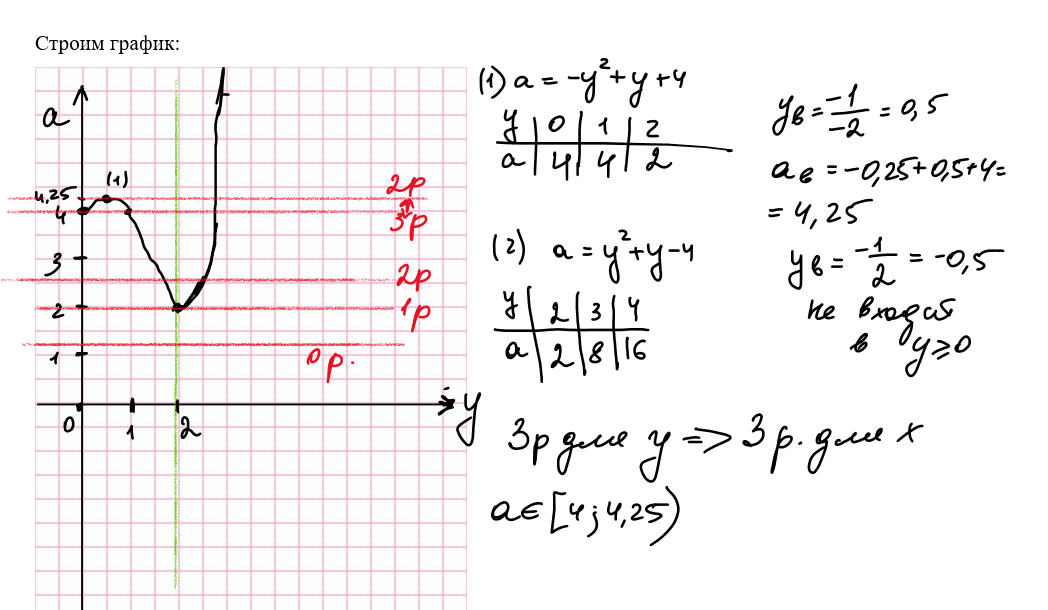 Строим график:
a
4,25
4
3
2
1
0
1
2
y
(1)
2р
3р
2р
1р
0 р.
(1) a = -y²+y+4
y | 0 | 1 | 2
a | 4 | 4 | 2
yв = -1/-2 = 0,5
aв = -0,25+0,5+4=
= 4,25
(2) a = y²+y-4
y | 2 | 3 | 4
a | 2 | 8 | 16
yв = -1/2 = -0,5
не входит
в y⩾0
3р для y => 3 р. для x
a∈[4;4,25)